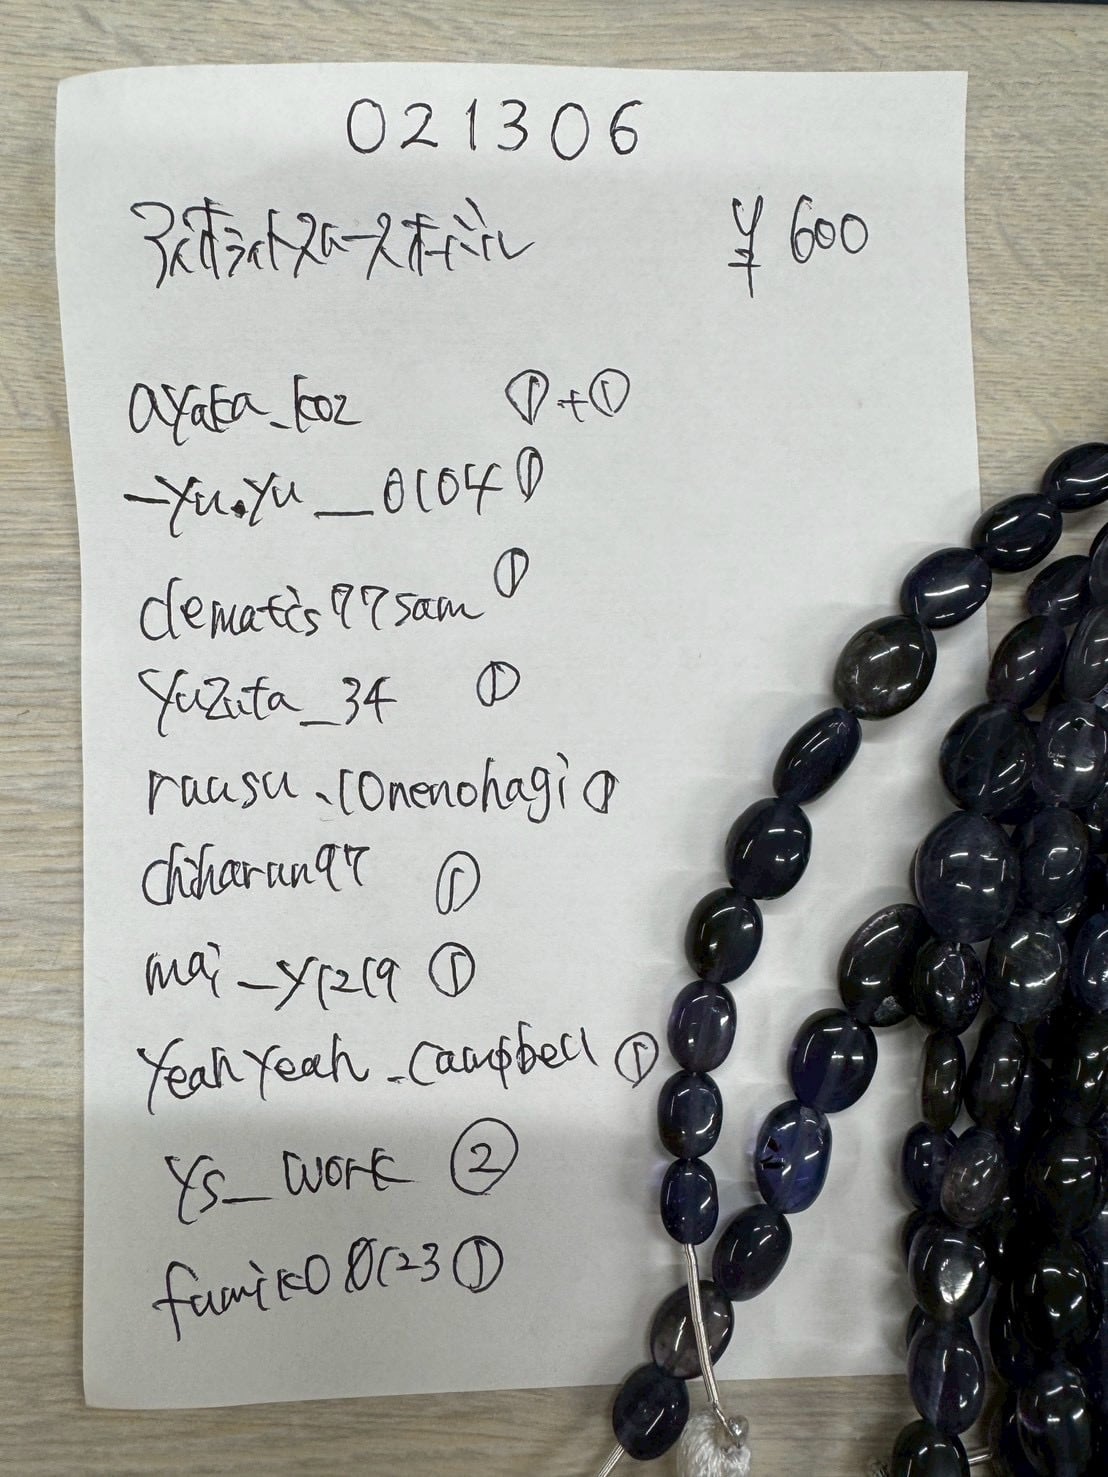 021306
アイオライトスムースオーバル ¥600
ayaka_koz ①+①
_yu.yu__0104 ①
clematis77sam ①
yuzuta_34 ①
raasu_10nenohagi ①
chiharun97 ①
mai_y1219 ①
yeahyeah_campbell ①
ys_work ②
fumiko0123 ①